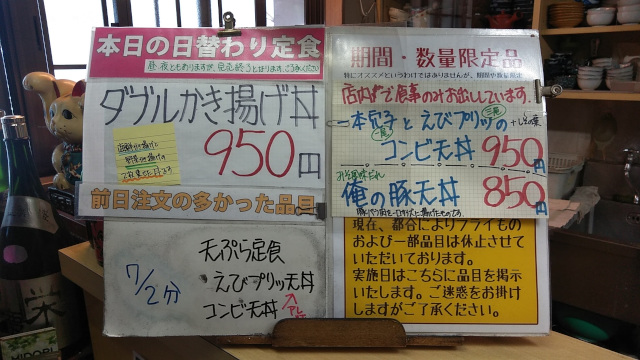 本日の日替わり定食
昼・夜ともありますが、完売終了となります。ご了承ください
ダブルかき揚げ丼
950円
前日注文の多かった品目
7/2分
天ぷら定食
えびプリッツ天丼
コンビ天丼
期間・数量限定品
特にオススメというわけではありませんが、期間や数量限定
店内でご食事のみお出ししています.
一本穴子とえびプリッツの
コンビ天丼 950円
俺の豚天丼 850円
現在、都合によりフライもの
および一部品目は休止させて
いただいております。
実施日はこちらに品目を掲示
いたします。ご迷惑をお掛け
しますがご了承ください。